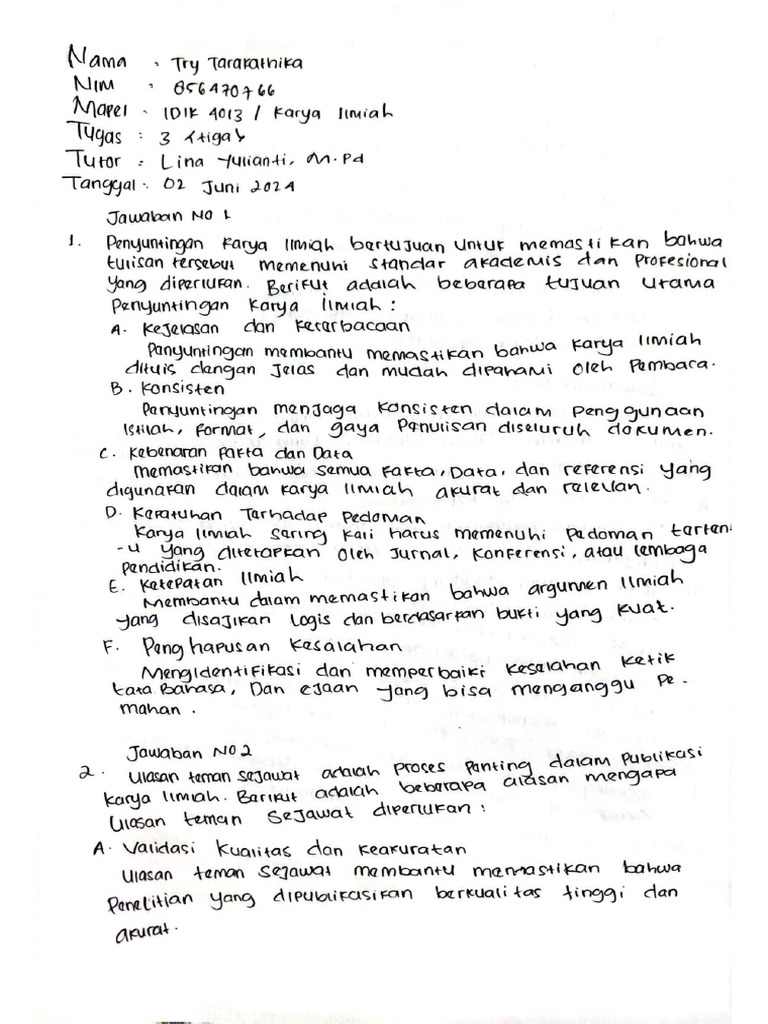 Nama : Try Tarapathika
NIM : 856470766
Mapel : IDIK 4013 / Karya Ilmiah
Tugas : 3 (tiga)
Tutor : Lina Yulianti, M.Pd
Tanggal : 02 Juni 2024
Jawaban NO 1
1. Penyuntingan Karya Ilmiah bertujuan untuk memastikan bahwa
tulisan tersebut memenuhi standar akademis dan Profesional
yang diperlukan. Berikut adalah beberapa tujuan utama
Penyuntingan Karya Ilmiah :
A. Kejelasan dan Keterbacaan
Penyuntingan membantu memastikan bahwa Karya Ilmiah
dituis dengan Jelas dan mudah dipahami oleh Pembaca.
B. Konsisten
Penyuntingan menjaga Konsisten dalam Penggunaan
Istilah, Format, dan gaya Penulisan diseluruh dokumen.
C. Kebenaran Fakta dan Data
memastikan bahwa semua Fakta, Data, dan referensi yang
digunakan dalam Karya Ilmiah akurat dan relevan.
D. Kepatuhan Terhadap Pedoman
Karya Ilmiah sering kali harus memenuhi Pedoman terten
-u yang ditetapkan oleh Jurnal, Konferensi, atau lembaga
pendidikan.
E. Ketepatan Ilmiah
Membantu dalam memastikan bahwa argumen Ilmiah
yang disajikan Logis dan berdasarkan bukti yang kuat.
F. Penghapusan Kesalahan
Mengidentifikasi dan memperbaiki Kesalahan Ketik
tata Bahasa, Dan ejaan yang bisa menganggu Pe.
mahan.
Jawaban NO 2
2. Ulasan teman sejawat adalah proses Penting dalam publikasi
Karya Ilmiah. Berikut adalah beberapa alasan mengapa
Ulasan teman Sejawat diperlukan :
A. Validasi Kualitas dan Keakuratan
Ulasan teman Sejawat membantu memastikan bahwa
Penelitian yang dipublikasikan berkualitas tinggi dan
akurat.